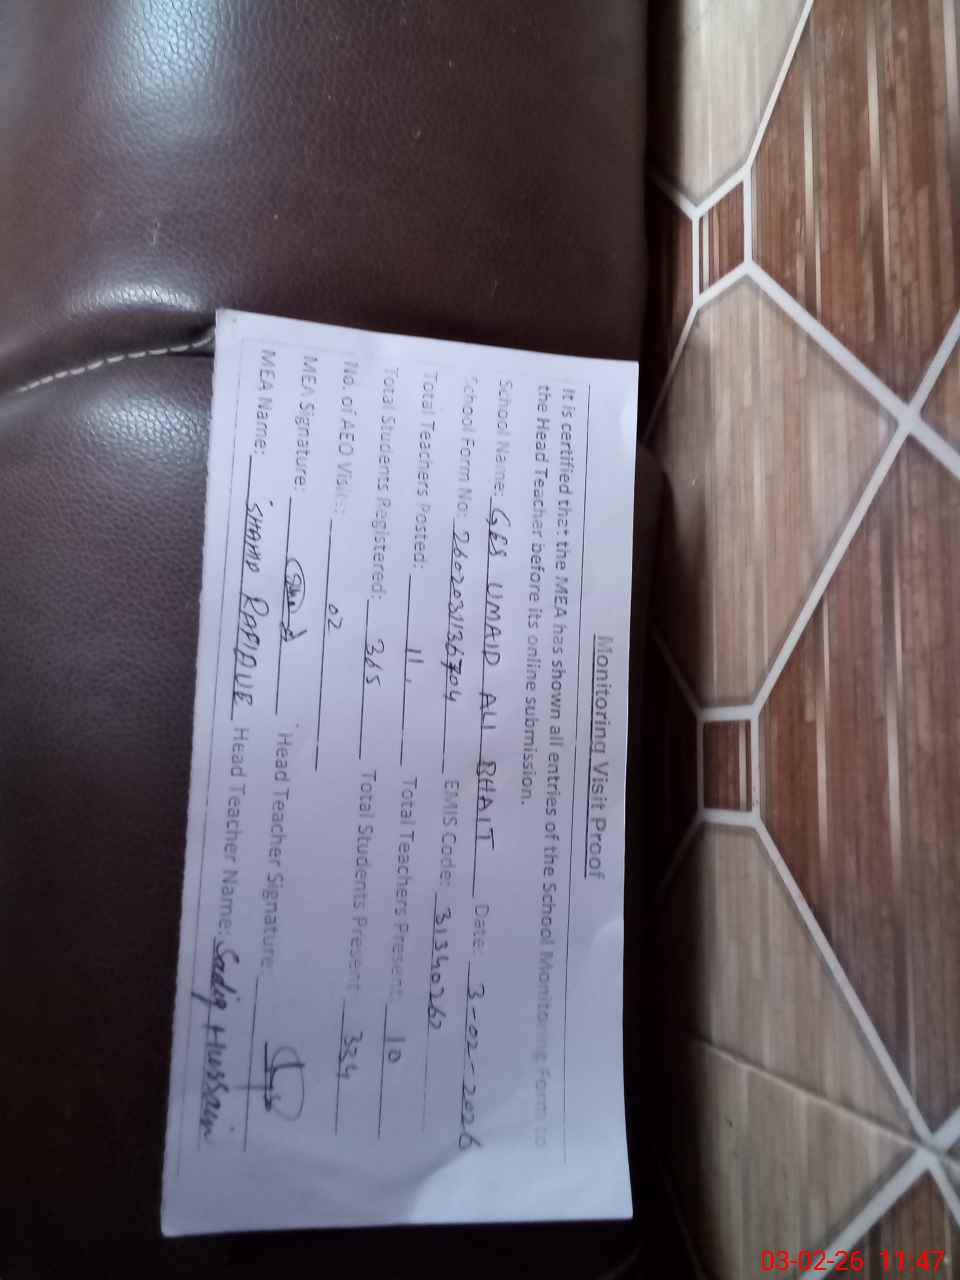 Monitoring Visit Proof
It is certified that the MEA has shown all entries of the School Monitoring Form to
the Head Teacher before its online submission.
School Name: GES UMAID ALI BHAIT Date: 3-02-2026
School Form No: 2602031136704 EMIS Code: 31340262
Total Teachers Posted: 11 Total Teachers Present: 10
Total Students Registered: 365 Total Students Present: 324
No. of AEO Visits: 02
MEA Signature: Head Teacher Signature:
MEA Name: Head Teacher Name: Sadiq Hussain
03-02-26 11:47